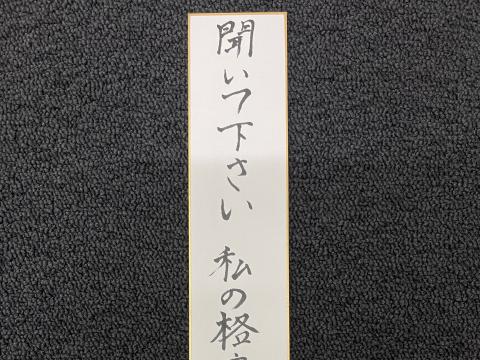 聞いて下さい 私の格